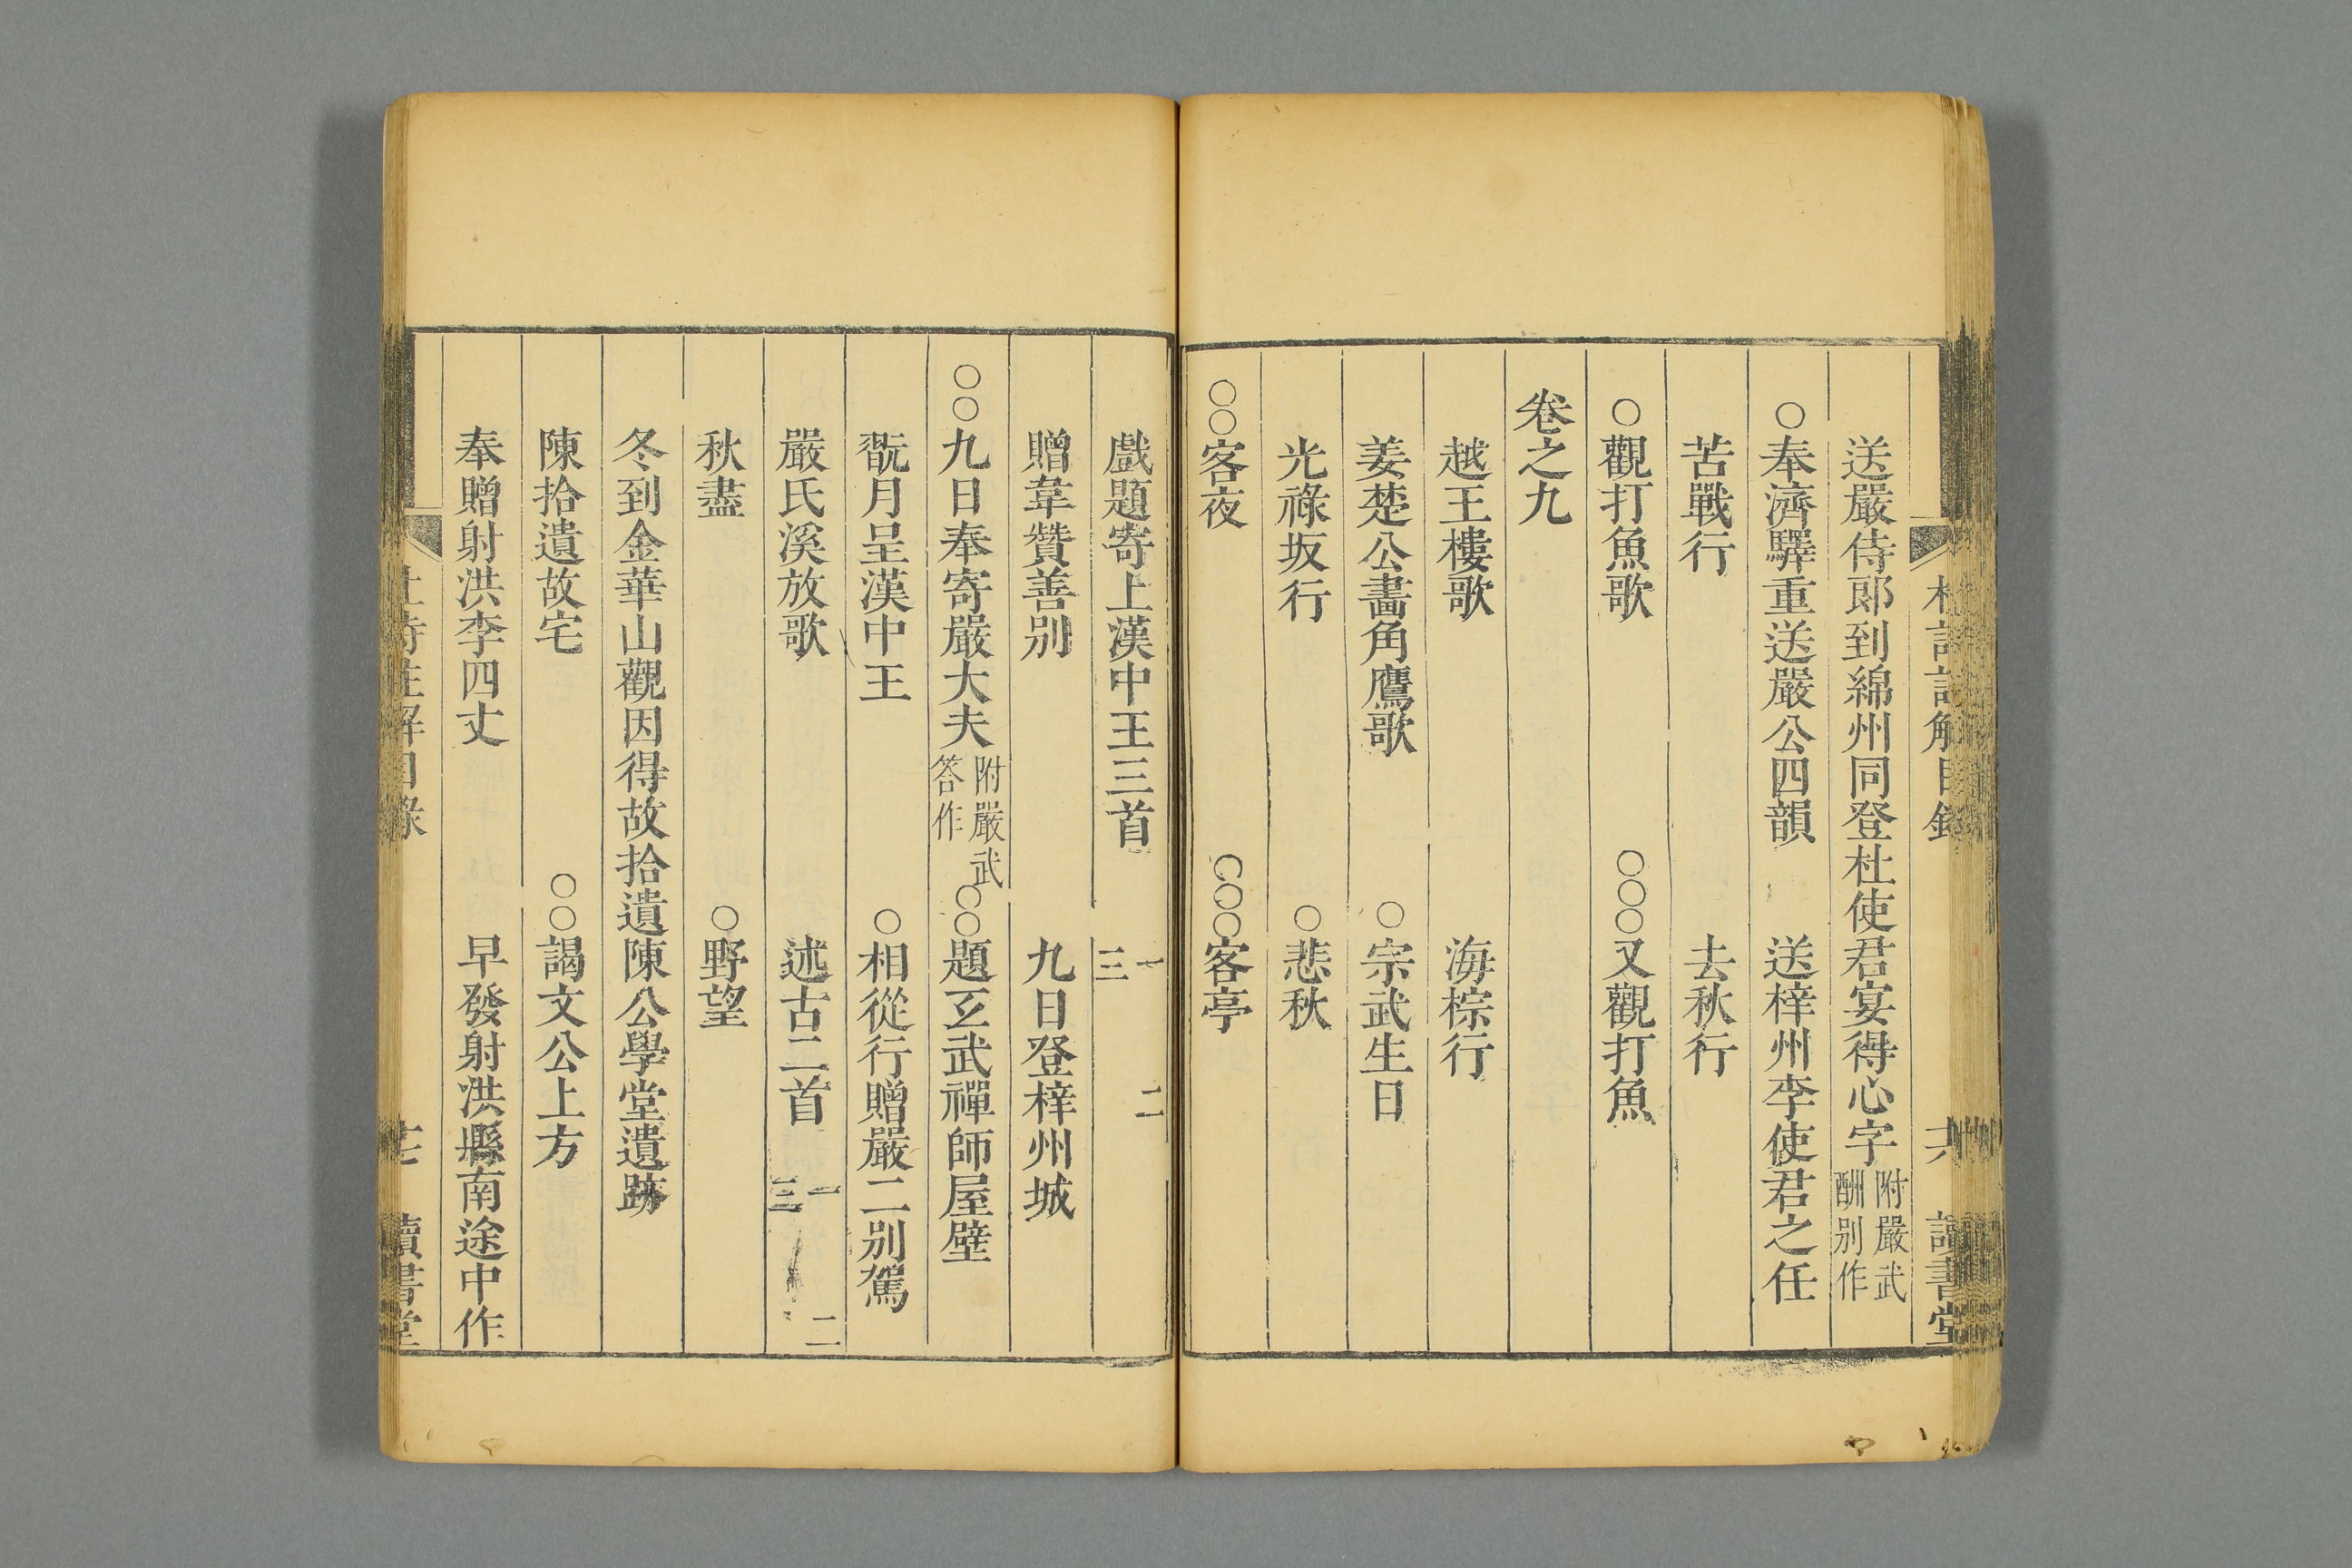 送嚴侍郞到綿州同登杜使君宴得心字附嚴武酬別作
○奉濟驛重送嚴公四韻 送梓州李使君之任
苦戰行 去秋行
○觀打魚歌 ○○○又觀打魚
卷之九
越王樓歌 海棕行
姜楚公畵角鷹歌 ○宗武生日
光祿坂行 ○悲秋
○○客夜 ○○○客亭
戲題寄上漢中王三首 一 二 三
贈韋贊善別 九日登梓州城
○○九日奉寄嚴大夫附嚴武答作 ○○題𤣥武禪師屋壁
翫月呈漢中王 ○相從行贈嚴二別駕
嚴氏溪放歌 述古二首 一 二 三
秋盡 ○野望
冬到金華山觀因得故拾遺陳公學堂遺跡
陳拾遺故宅 ○○謁文公上方
奉贈射洪李四丈 早發射洪縣南途中作